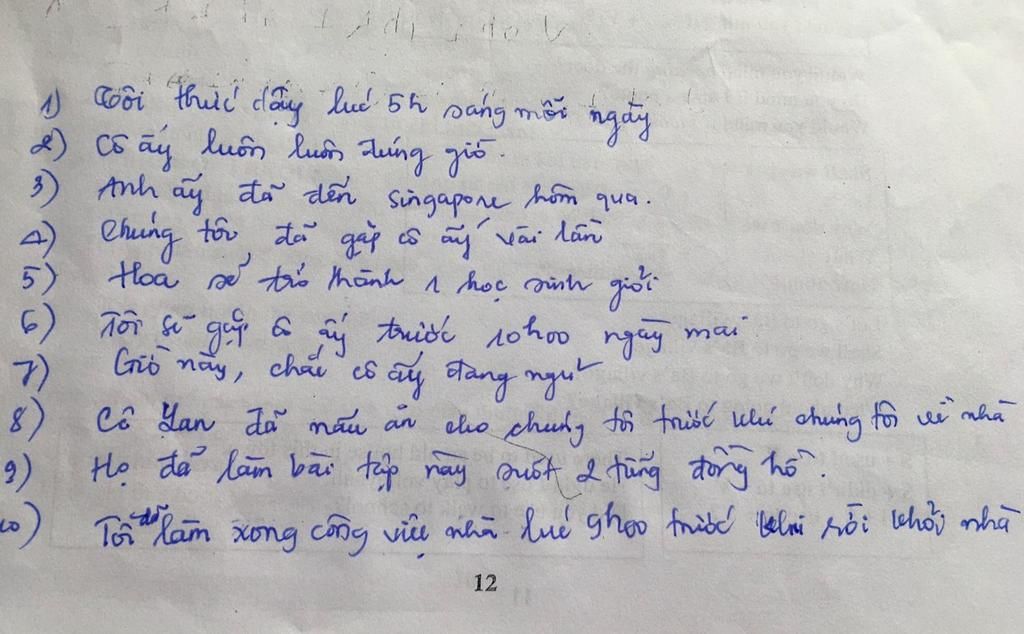 1) Tôi thức dậy lúc 5h sáng mỗi ngày
2) Cô ấy luôn luôn đúng giờ.
3) Anh ấy đã đến singapore hôm qua.
4) Chúng tôi đã gặp cô ấy vài lần
5) Hoa sẽ trở thành 1 học sinh giỏi
6) Tôi sẽ gặp cô ấy trước 10h00 ngày mai
7) Giờ này, chắc cô ấy đang ngủ
8) Cô Lan đã nấu ăn cho chúng tôi trước khi chúng tôi về nhà
9) Họ đã làm bài tập này suốt 2 tiếng đồng hồ.
10) Tôi đã làm xong công việc nhà lúc 9h00 trước khi rời khỏi nhà
12